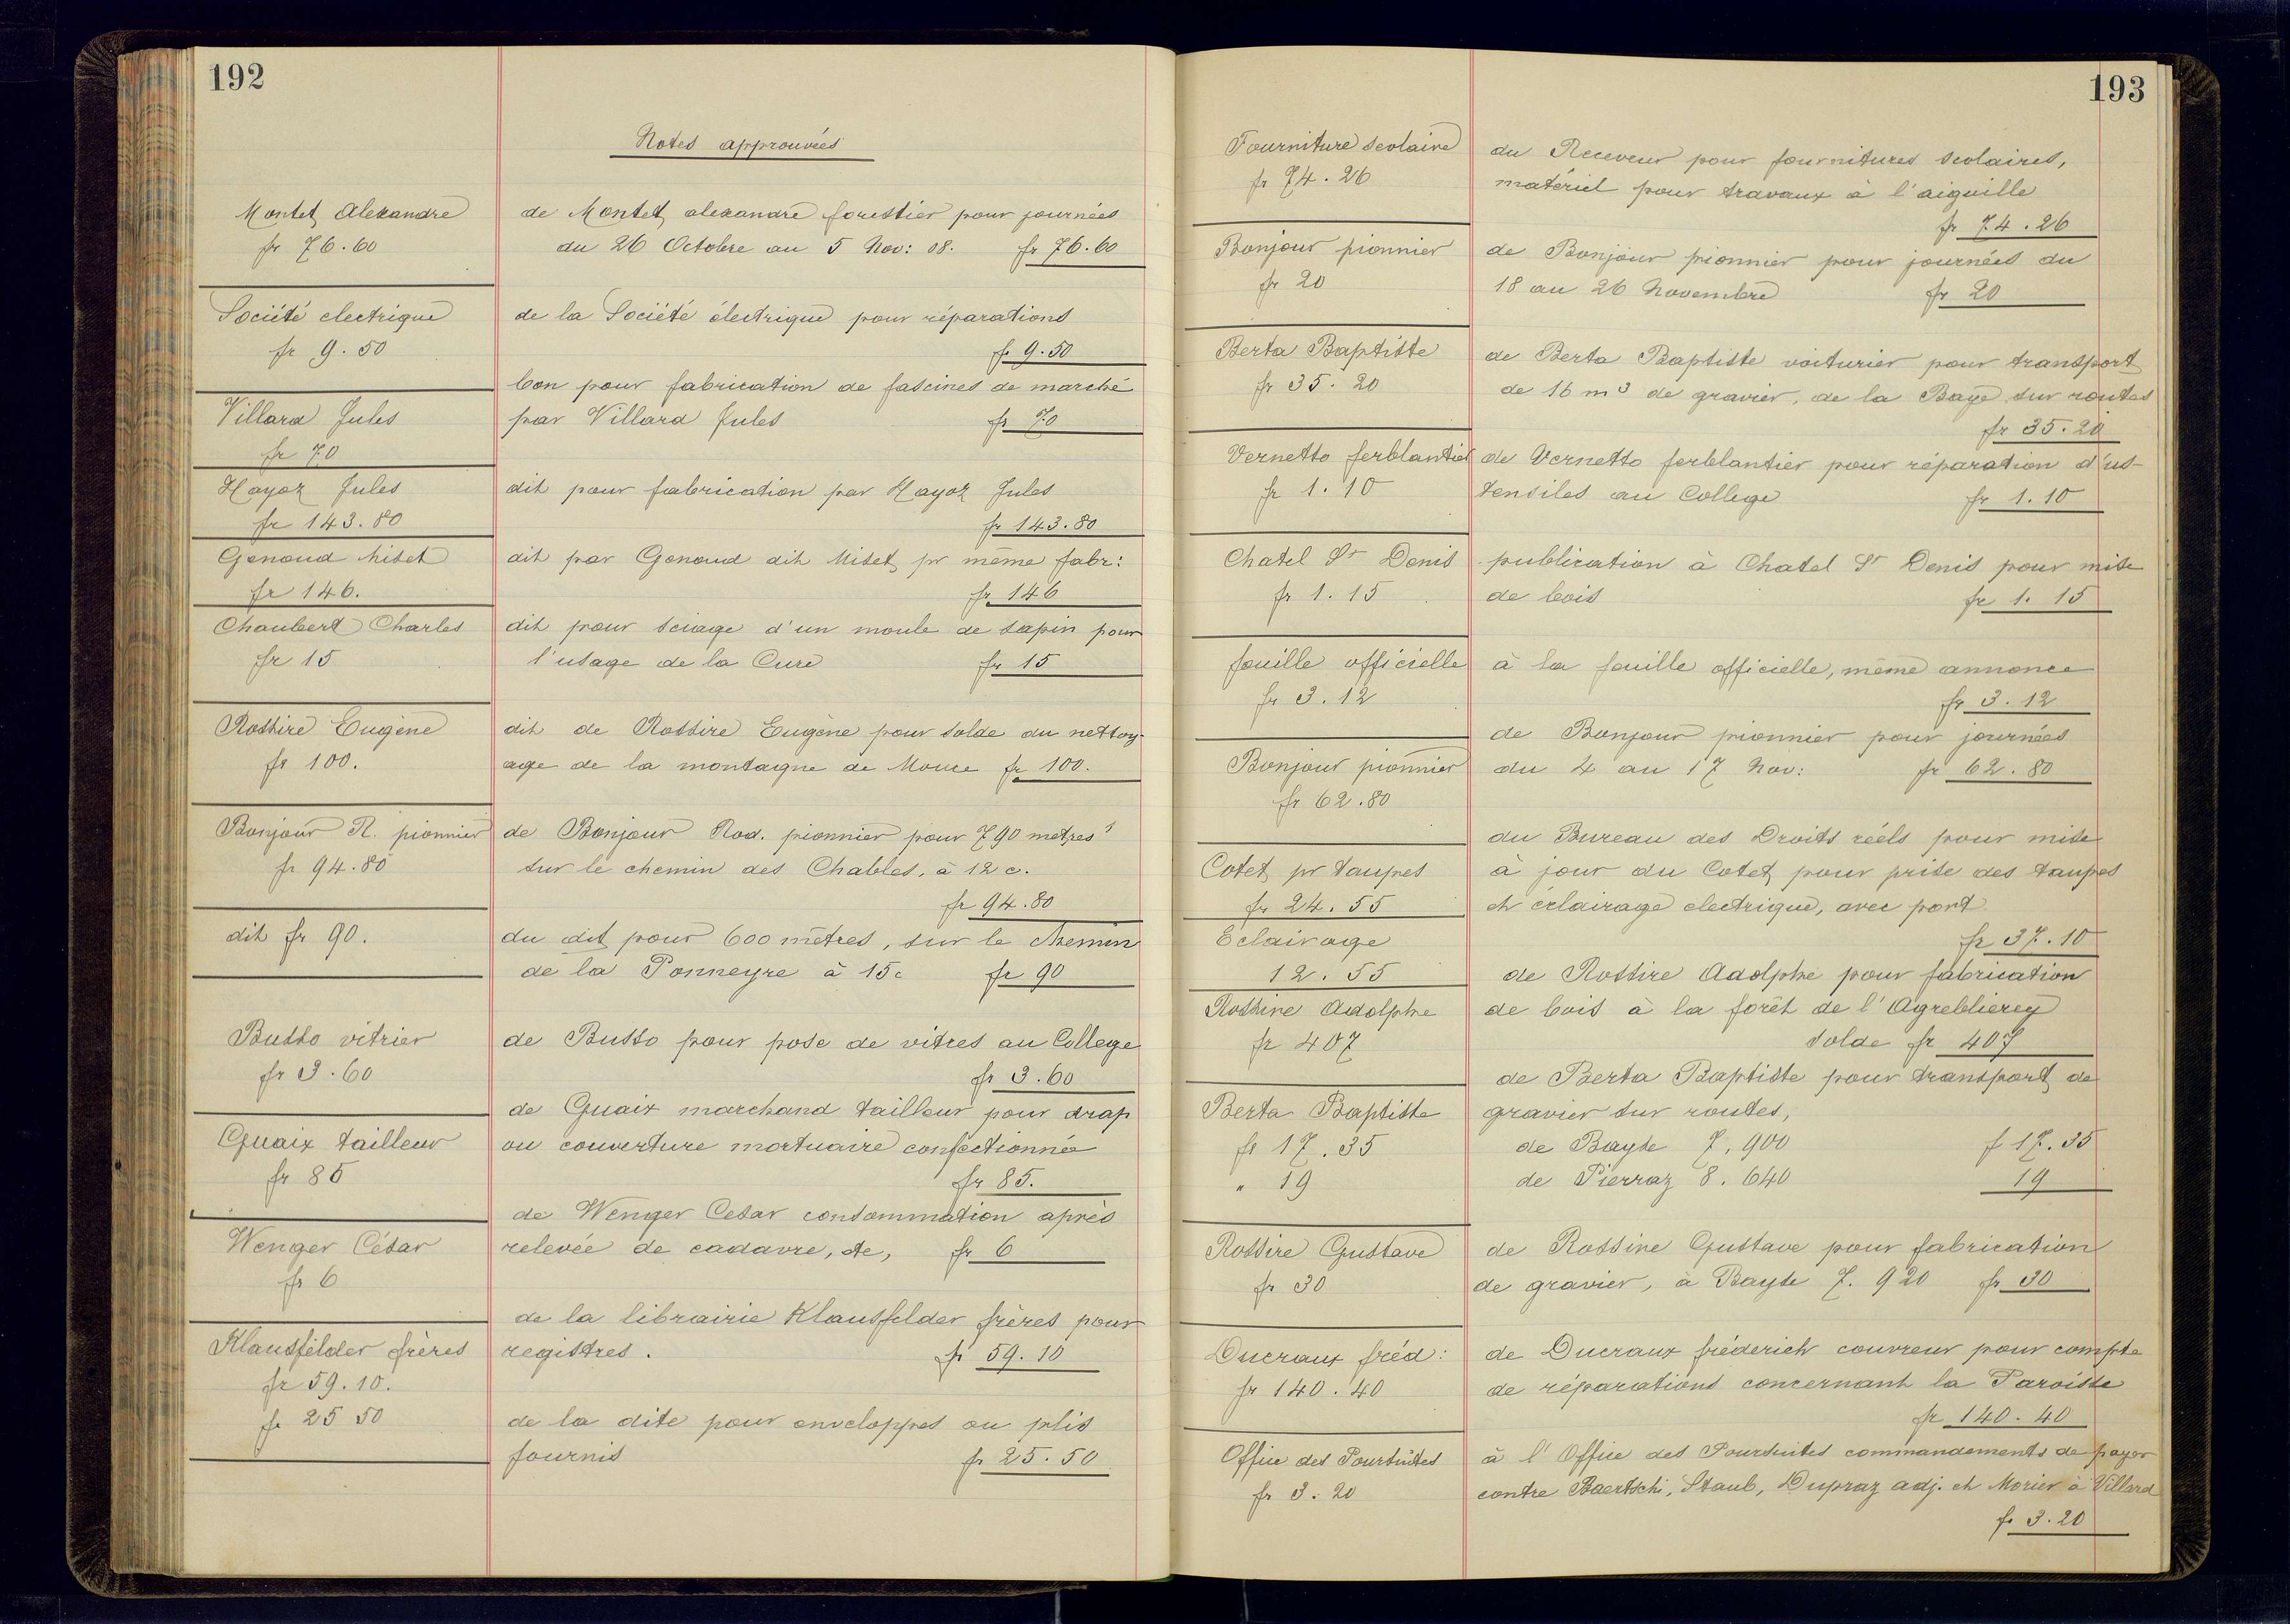 192
Notes approuvées
Montet Alexandre
fr 76.60
de Montet alexandre forestier pour journées
du 26 Octobre au 5 Nov: 08. fr 76.60
Société electrique
fr 9.50
de la Société électrique pour réparations
fr 9.50
Villard Jules
fr 70
bon pour fabrication de fascines de marché
par Villard Jules fr 70
Hayoz Jules
fr 143.80
dit pour fabrication par Hayoz Jules
fr 143.80
Genoud Miset
fr 146.
dit par Genoud dit Miset pr même fabr:
fr 146
Chaubert Charles
fr 15
dit pour sciage d'un moule de sapin pour
l'usage de la Cure fr 15
Rossire Eugène
fr 100.
dit de Rossire Eugène pour solde du nettoy-
age de la montagne de Mouce fr 100.
Bonjour R. pionnier
fr 94.80
de Bonjour Rod. pionnier pour 790 metres
sur le chemin des Chables, à 12 c.
fr 94.80
dit fr 90.
du dit pour 600 mètres, sur le chemin
de la Ponneyre à 15c fr 90
Busso vitrier
fr 3.60
de Busso pour pose de vitres au College
fr 3.60
Quaix tailleur
fr 85
de Quaix marchand tailleur pour drap
ou couverture mortuaire confectionnée
fr 85.
Wenger César
fr 6
de Wenger Cesar consommation après
relevée de cadavre, etc, fr 6
Klausfelder frères
fr 59.10.
fr 25 50
de la librairie Klausfelder frères pour
registres. fr 59.10
de la dite pour enveloppes ou plis
fournis fr 25.50
193
Fourniture scolaire
fr 74.26
du Receveur pour fournitures scolaires,
matériel pour travaux à l'aiguille
fr 74.26
Bonjour pionnier
fr 20
de Bonjour pionnier pour journées du
18 au 26 Novembre fr 20
Berta Baptiste
fr 35.20
de Berta Baptiste voiturier pour transport
de 16 m3 de gravier, de la Baye sur routes
fr 35.20
Vernetto ferblantier
fr 1.10
de Vernetto ferblantier pour réparation d'us-
tensiles au College fr 1.10
Chatel St Denis
fr 1.15
publication à Chatel St Denis pour mise
de bois fr 1.15
feuille officielle
fr 3.12
à la feuille officielle, même annonce
fr 3.12
Bonjour pionnier
fr 62.80
de Bonjour pionnier pour journées
du 4 au 17 Nov: fr 62.80
Cotet pr taupes
fr 24.55
Eclairage
12.55
du Bureau des Droits réels pour mise
à jour du Cotet pour prise des taupes
et éclairage electrique, avec port
fr 37.10
Rossire Adolphe
fr 407
de Rossire Adolphe pour fabrication
de bois à la forêt de l'Agreblierey
solde fr 407
Berta Baptiste
fr 17.35
" 19
de Berta Baptiste pour transport de
gravier sur routes,
de Bayse 7,900 f 17.35
de Pierraz 8.640 19
Rossire Gustave
fr 30
de Rossire Gustave pour fabrication
de gravier, à Bayse 7.920 fr 30
Ducraux fréd:
fr 140.40
de Ducraux fréderich couvreur pour compte
de réparations concernant la Paroisse
fr 140.40
Office des Poursuites
fr 3.20
à l'Office des Poursuites commandements de payer
contre Baertschi, Staub, Dupraz adj. et Morier à Villard
fr 3.20